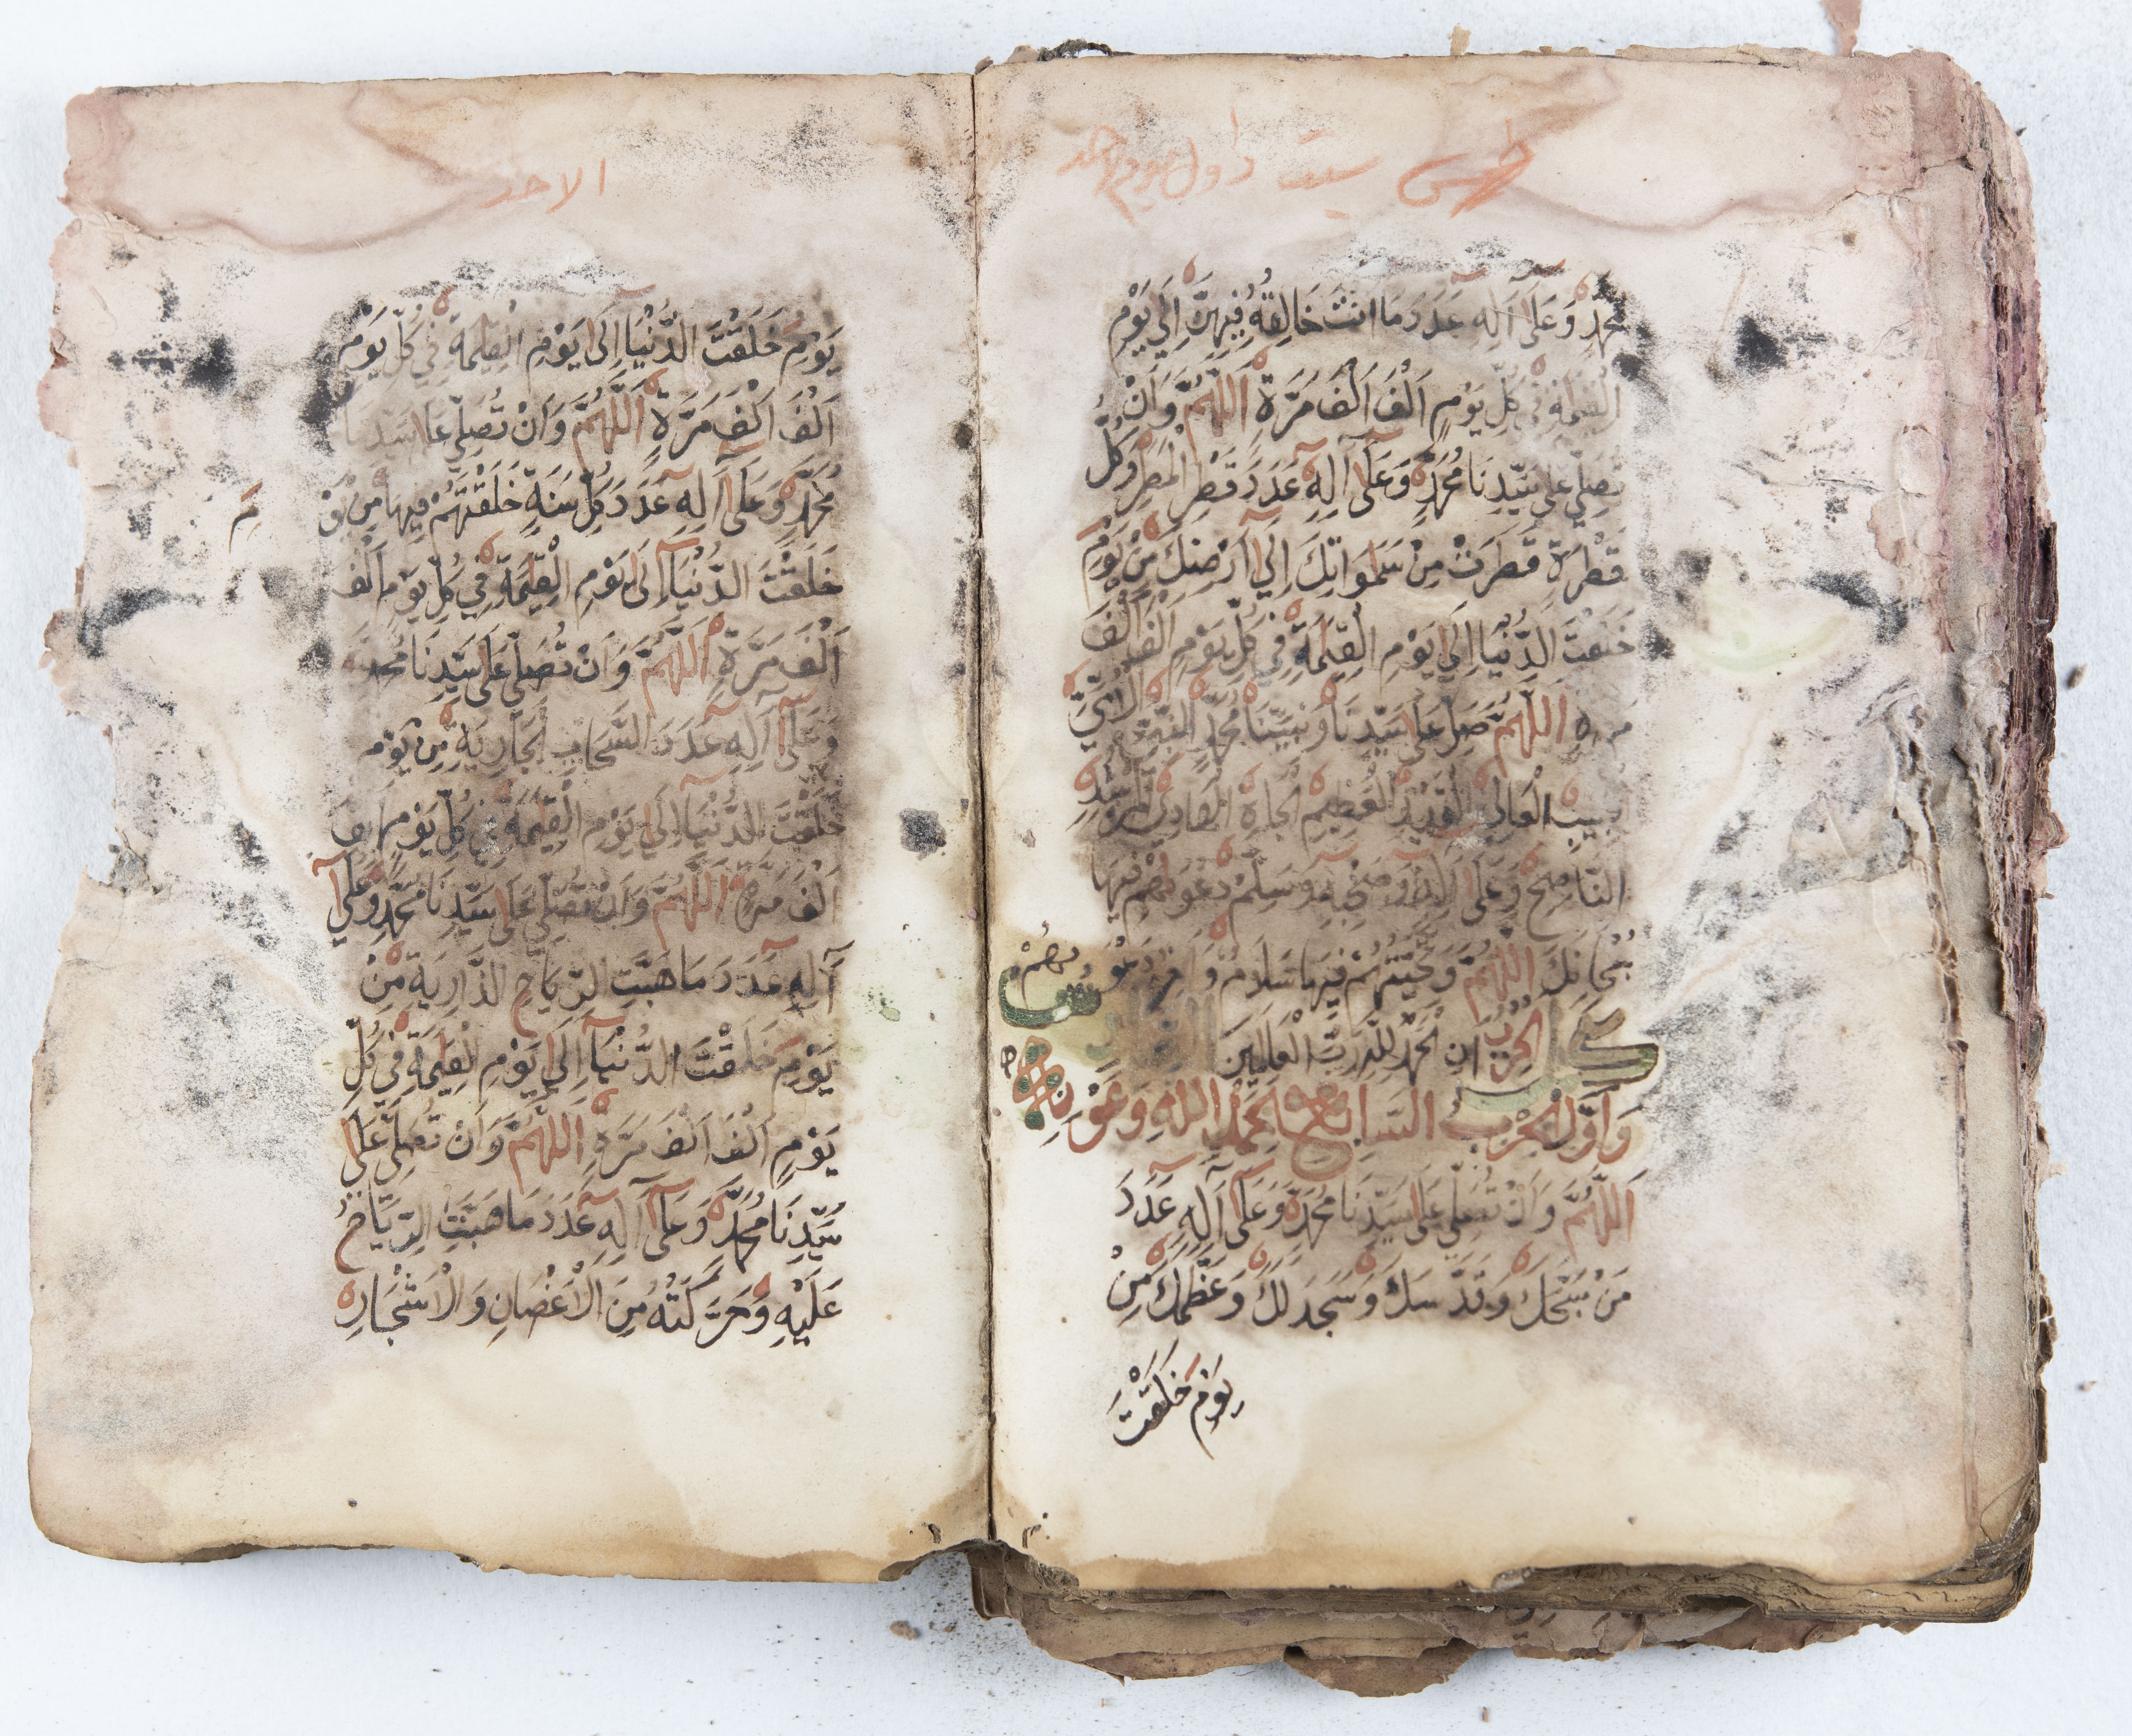 سبت واول يوم احد
محمد وَعَلَى آلِهِ عَدَدَ مَا اَنْتَ خَالِقُهُ فِيهِنَّ اِلَى يَوْمِ
الْقِيٰمَةِ فِي كُلِّ يَوْمٍ اَلْفَ اَلْفَ مَرَّةٍ اَللَّهُمَّ وَاَنْ
تُصَلِّيَ عَلَى سَيِّدِنَا مُحَمَّدٍ وَعَلَى آلِهِ عَدَدَ قَطْرِ الْمَطَرِ وَكُلِّ
قَطْرَةٍ قَطَرَتْ مِنْ سَمٰوَاتِكَ اِلَى اَرْضِكَ مِنْ يَوْمِ
خَلَقْتَ الدُّنْيَا اِلَى يَوْمِ الْقِيٰمَةِ فِي كُلِّ يَوْمٍ اَلْفَ اَلْفَ
مَرَّةٍ اللَّهُمَّ صَلِّ عَلَى سَيِّدِنَا وَنَبِيِّنَا مُحَمَّدٍ النَّبِيِّ الْاُمِّيِّ
الْعَالِي الْقَدْرِ الْعَظِيمِ الْجَاهِ
وَعَلَى آلِهِ وَصَحْبِهِ وَسَلِّمْ دَعْوَىهُمْ فِيهَا
سُبْحَانَكَ اللَّهُمَّ وَتَحِيَّتُهُمْ فِيهَا سَلَامٌ وَآخِرُ دَعْوَ
يهُمْ
اَنِ الْحَمْدُ لِلَّهِ رَبِّ الْعَالَمِينَ كمل الحزب
وَاَوَّلُ الْحِزْبِ السَّابِعْ بِحَمْدِ اللهِ وَعَوْنِهِ
اَللَّهُمَّ وَاَنْ تُصَلِّيَ عَلَى سَيِّدِنَا مُحَمَّدٍ وَعَلَى آلِهِ عَدَدَ
مَنْ سَبَّحَكَ وَقَدَّسَكَ وَسَجَدَ لَكَ وَعَظَّمَكَ مِنْ
يَوْمِ خَلَقْتَ
الاحد
يَوْمِ خَلَقْتَ الدُّنْيَا اِلَى يَوْمِ الْقِيٰمَةِ فِي كُلِّ يَوْمٍ
اَلْفَ اَلْفَ مَرَّةٍ اَللَّهُمَّ وَاَنْ تُصَلِّيَ عَلَى سَيِّدِنَا
مُحَمَّدٍ وَعَلَى آلِهِ عَدَدَ كُلِّ سَنَةٍ خَلَقْتَهُمْ فِيهَا مِنْ يَوْ
مِ
خَلَقْتَ الدُّنْيَا اِلَى يَوْمِ الْقِيٰمَةِ فِي كُلِّ يَوْمٍ اَلْفَ
اَلْفَ مَرَّةٍ اَللَّهُمَّ وَاَنْ تُصَلِّيَ عَلَى سَيِّدِنَا مُحَمَّدٍ
وَعَلَى آلِهِ عَدَدَ السَّحَابِ الْجَارِيَةِ مِنْ يَوْمِ
خَلَقْتَ الدُّنْيَا اِلَى يَوْمِ الْقِيٰمَةِ فِي كُلِّ يَوْمٍ اَلْفَ
اَلْفَ مَرَّةٍ اَللَّهُمَّ وَاَنْ تُصَلِّيَ عَلَى سَيِّدِنَا مُحَمَّدٍ وَعَلَى
آلِهِ عَدَدَ مَا هَبَّتِ الرِّيَاحِ الذَّارِيَةِ مِنْ
يَوْمِ خَلَقْتَ الدُّنْيَا اِلَى يَوْمِ الْقِيٰمَةِ فِي كُلِّ
يَوْمٍ اَلْفَ اَلْفَ مَرَّةٍ اَللَّهُمَّ وَاَنْ تُصَلِّيَ عَلَى
سَيِّدِنَا مُحَمَّدٍ وَعَلَى آلِهِ عَدَدَ مَا هَبَّتِ الرِّيَاحُ
عَلَيْهِ وَحَرَّكَتْهُ مِنَ الْاَغْصَانِ وَالْاَشْجَارِ